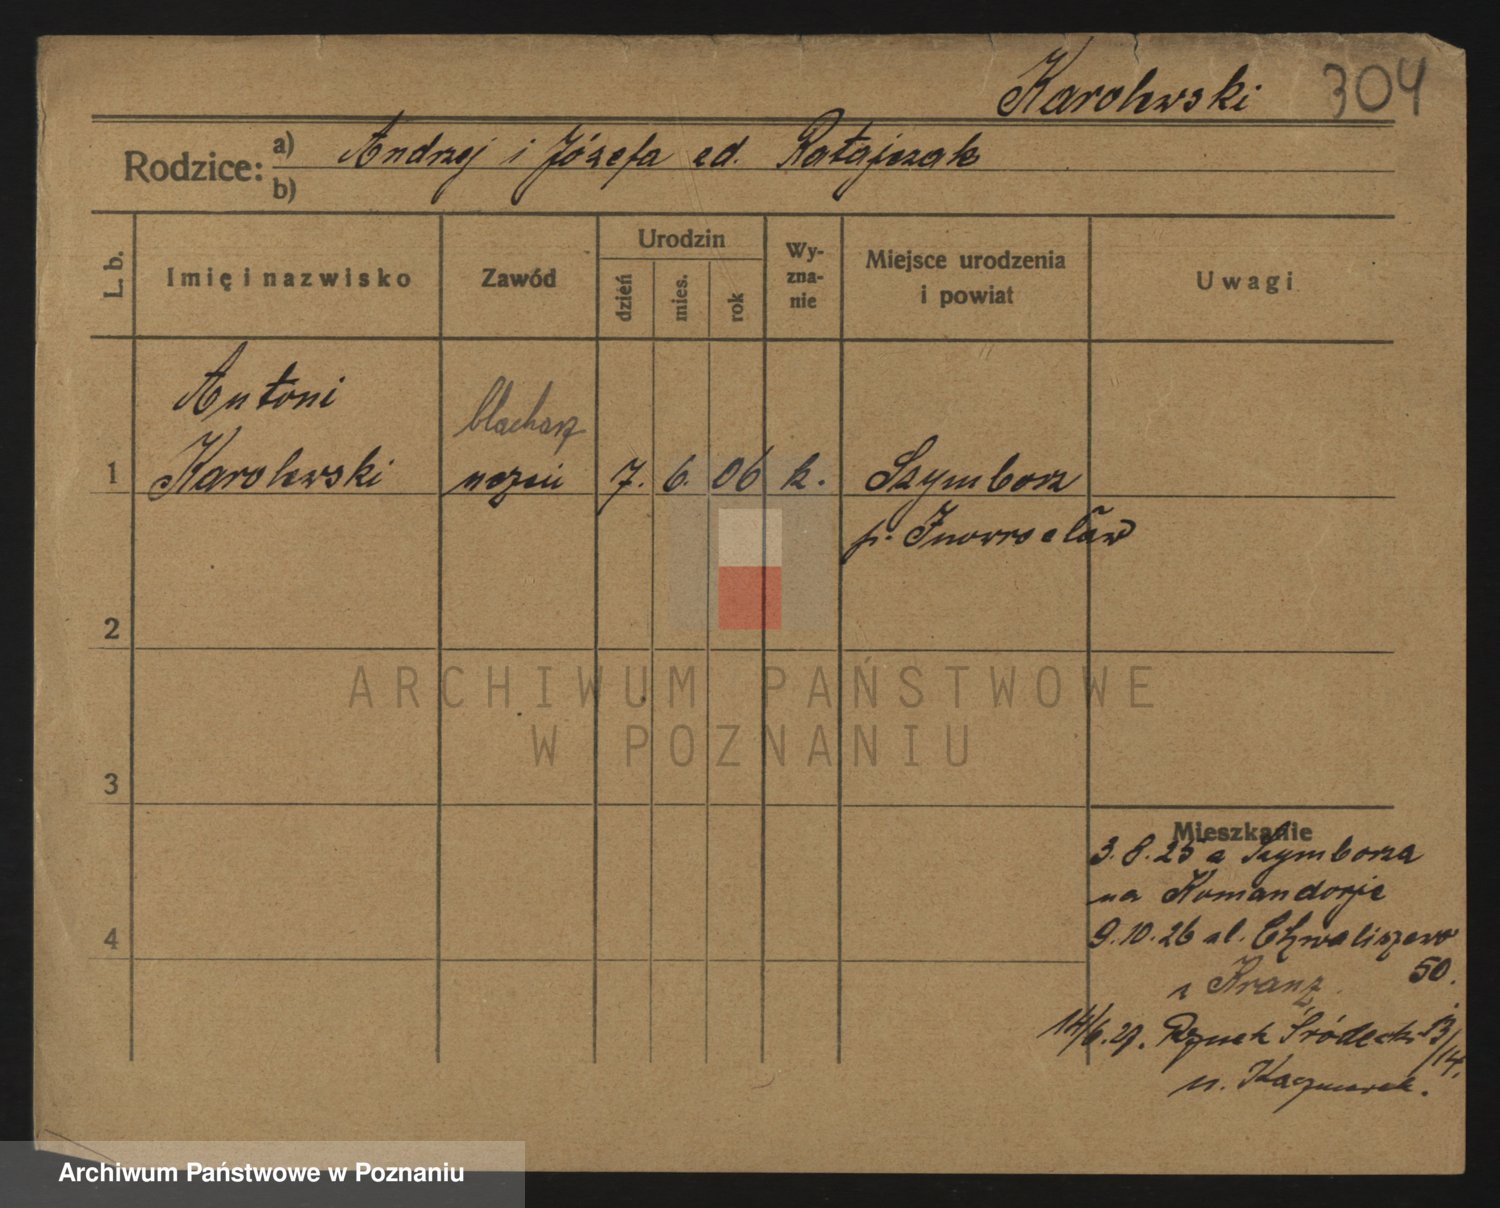 Karolewski 304
Rodzice: a) Andrzej i Józefa zd. Ratajczak
b)
L. b.
Imię i nazwisko
Zawód
Urodzin
dzień
mies.
rok
Wy-
zna-
nie
Miejsce urodzenia
i powiat
Uwagi
Antoni
blacharz
1 Karolewski uczeń 7. 6. 06 k. Szymborz
p. Inowrocław
2
ARCHIWUM PAŃSTWOWE
W POZNANIU
3
Mieszkanie
3.8.25 z Szymborza
na Komandorje
4
9.10.26 ul. Chwaliszewo
50.
u Kranz
14/6.29. Rynek Śródecki 13/
14.
u. Kaczmarek.
Archiwum Państwowe w Poznaniu